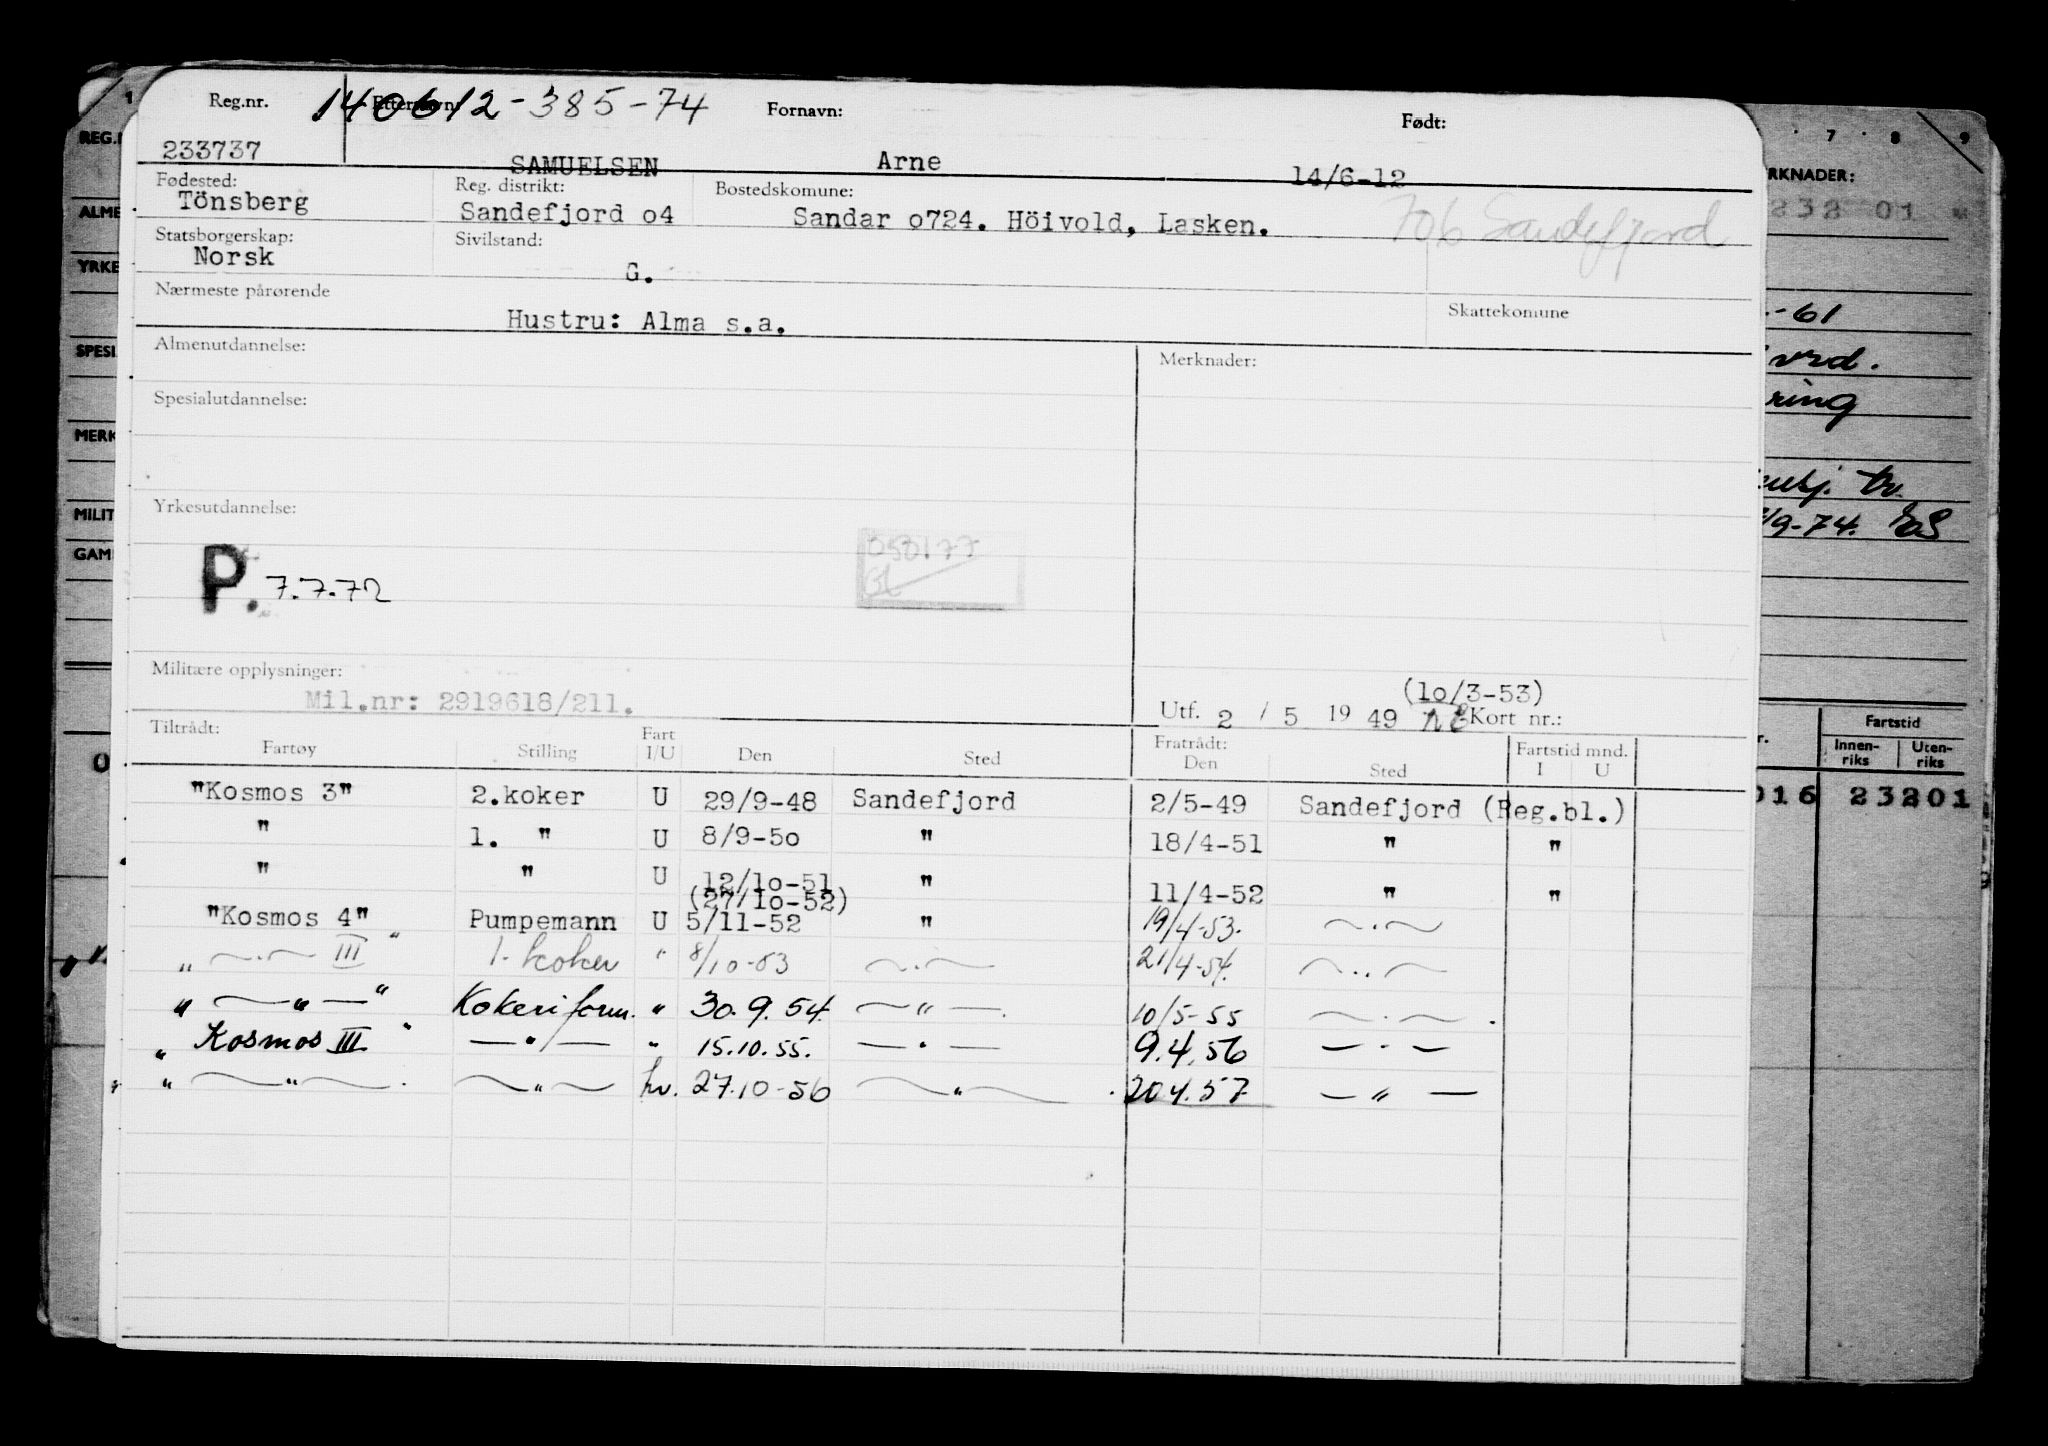 Reg.nr. Etternavn: 140612-385-74 Fornavn: Født:
233737 SAMUELSEN Arne 14/6-12
Fødested: Reg. distrikt: Bostedskomune:
Tönsberg Sandefjord o4 Sandar o724. Höivold, Lasken. 706 Sandefjord
Statsborgerskap: Sivilstand:
Norsk G.
Nærmeste pårørende Skattekomune
Hustru: Alma s.a.
Almenutdannelse: Merknader:
Spesialutdannelse:
Yrkesutdannelse:
P. 7.7.72
Militære opplysninger:
Mil.nr: 2919618/211. (1o/3-53)
Utf. 2 / 5 19 49 Kort nr.:
Tiltrådt: Fart Fratrådt: Fartstid mnd.
Fartøy Stilling I/U Den Sted Den Sted I U
"Kosmos 3" 2.koker U 29/9-48 Sandefjord 2/5-49 Sandefjord (Reg.bl.)
" 1. " U 8/9-5o " 18/4-51 " "
" " U 12/1o-51 " 11/4-52 " "
(27/1o-52)
"Kosmos 4" Pumpemann U 5/11-52 " 19/4-53. — . —
„ — . — III " 1. koker " 8/10-53 — . — 21/4-54. — .. —
„ — „ — " Kokeriform. " 30.9.54. — " —. 10/5-55 — . — .
„ Kosmos III. " — " — " 15.10.55. — . — 9.4.56 — . —
" — " — . — " — hv. 27.10-56 — " — . 20.4.57 — " —
1 7 8 9
REG.
ALME
YRKE
SPESI
MERK
MILIT
GAM
RKNADER:
232 01
-61
vrd.
ring
/9-74.
Fartstid
Innen-
riks
Uten-
riks
016 23201